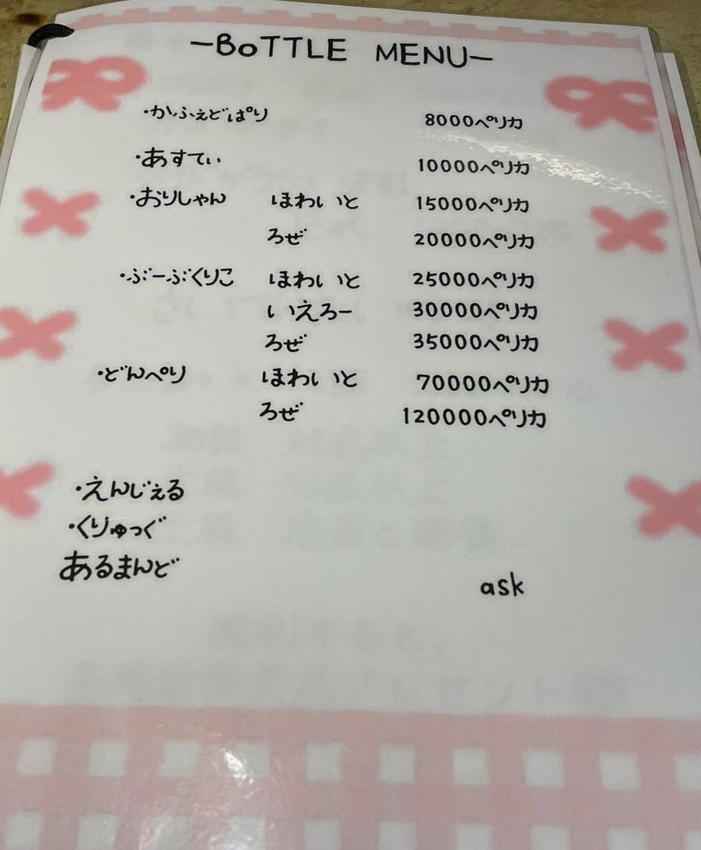 -BoTTLE MENU-
・かふぇどぱり 8000ペリカ
・あすてぃ 10000ペリカ
・おりしゃん ほわいと 15000ペリカ
ろぜ 20000ペリカ
・ぶーぶくりこ ほわいと 25000ペリカ
いえろー 30000ペリカ
ろぜ 35000ペリカ
・どんぺり ほわいと 70000ペリカ
ろぜ 120000ペリカ
・えんじぇる
・くりゅっぐ
あるまんど
ask